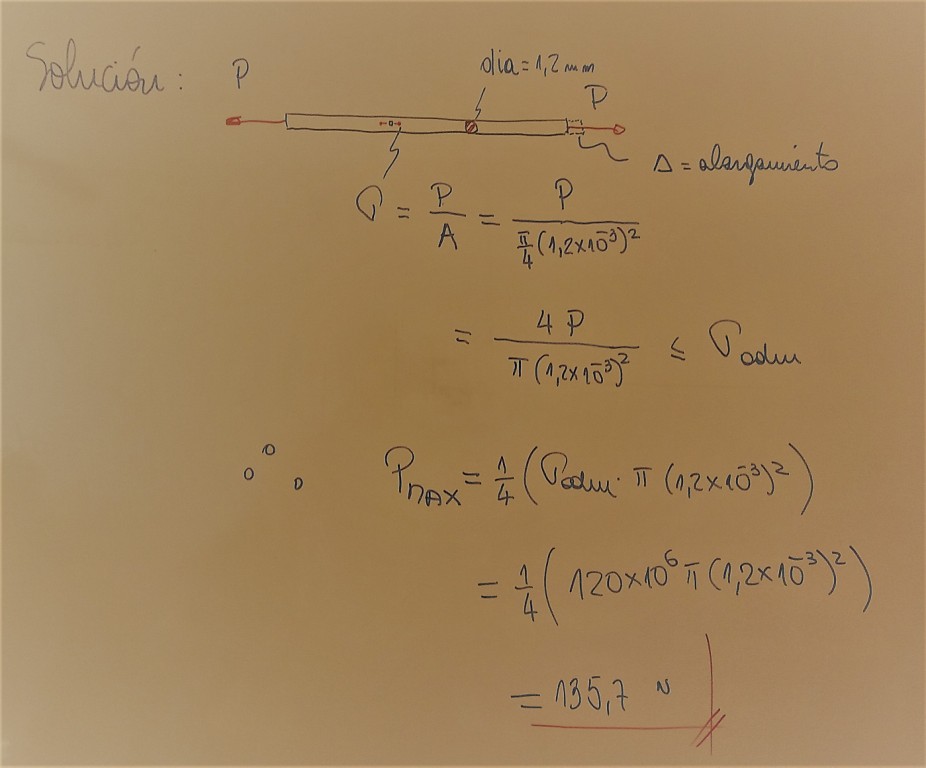 Solución:
P
dia = 1,2 mm
P
Δ = alargamiento
σ = P/A = P / (π/4 (1,2×10⁻³)²)
= 4P / (π (1,2×10⁻³)²) ≤ σadm
Pmax = 1/4 (σadm · π (1,2×10⁻³)²)
= 1/4 (120×10⁶ π (1,2×10⁻³)²)
= 135,7 N